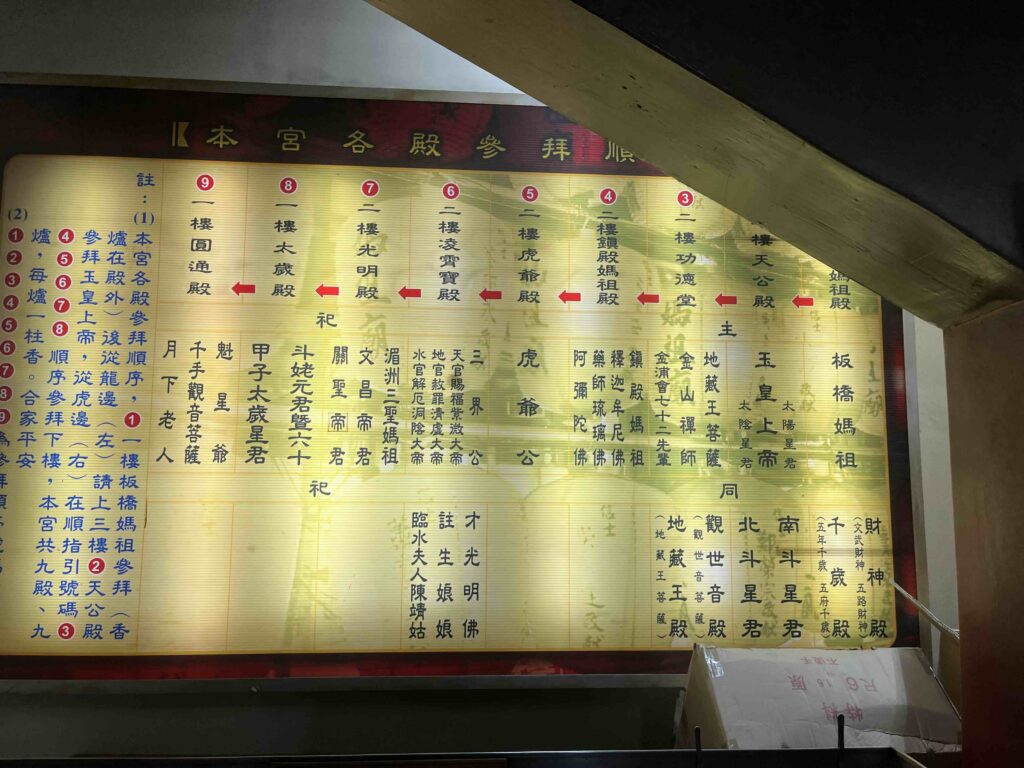 【本宮各殿參拜順
媽祖殿
樓天公殿
❸二樓功德堂
❹二樓鎮殿媽祖殿
❺二樓虎爺殿
❻二樓凌霄寶殿
❼二樓光明殿
❽一樓太歲殿
❾一樓圓通殿
主祀
板橋媽祖
太陽星君
玉皇上帝
太陰星君
地藏王菩薩
金山禪師
金浦會七十二先輩
鎮殿媽祖
釋迦牟尼佛
藥師琉璃佛
阿彌陀佛
虎爺公
三界公
天官賜福紫微大帝
地官赦罪清虛大帝
水官解厄洞陰大帝
湄洲三聖媽祖
文昌帝君
關聖帝君
斗姥元君暨六十
甲子太歲星君
魁星爺
千手觀音菩薩
月下老人
同祀
財神殿
(文武財神 五路財神)
千歲殿
(五年千歲 五府千歲)
南斗星君
北斗星君
觀世音殿
(觀世音菩薩)
地藏王殿
(地藏王菩薩)
才光明佛
註生娘娘
臨水夫人陳靖姑
註:(1)本宮各殿參拜順序,❶一樓板橋媽祖參拜(香
爐在殿外)後從龍邊(左)請上三樓❷天公殿
參拜玉皇上帝,從虎邊(右)在順指引號碼❸
❹❺❻❼❽順序參拜下樓,本宮共九殿、九
爐,每爐一柱香。合家平安
(2)❶❷❸❹❺❻❼❽❾為參拜順
尺6 16 原